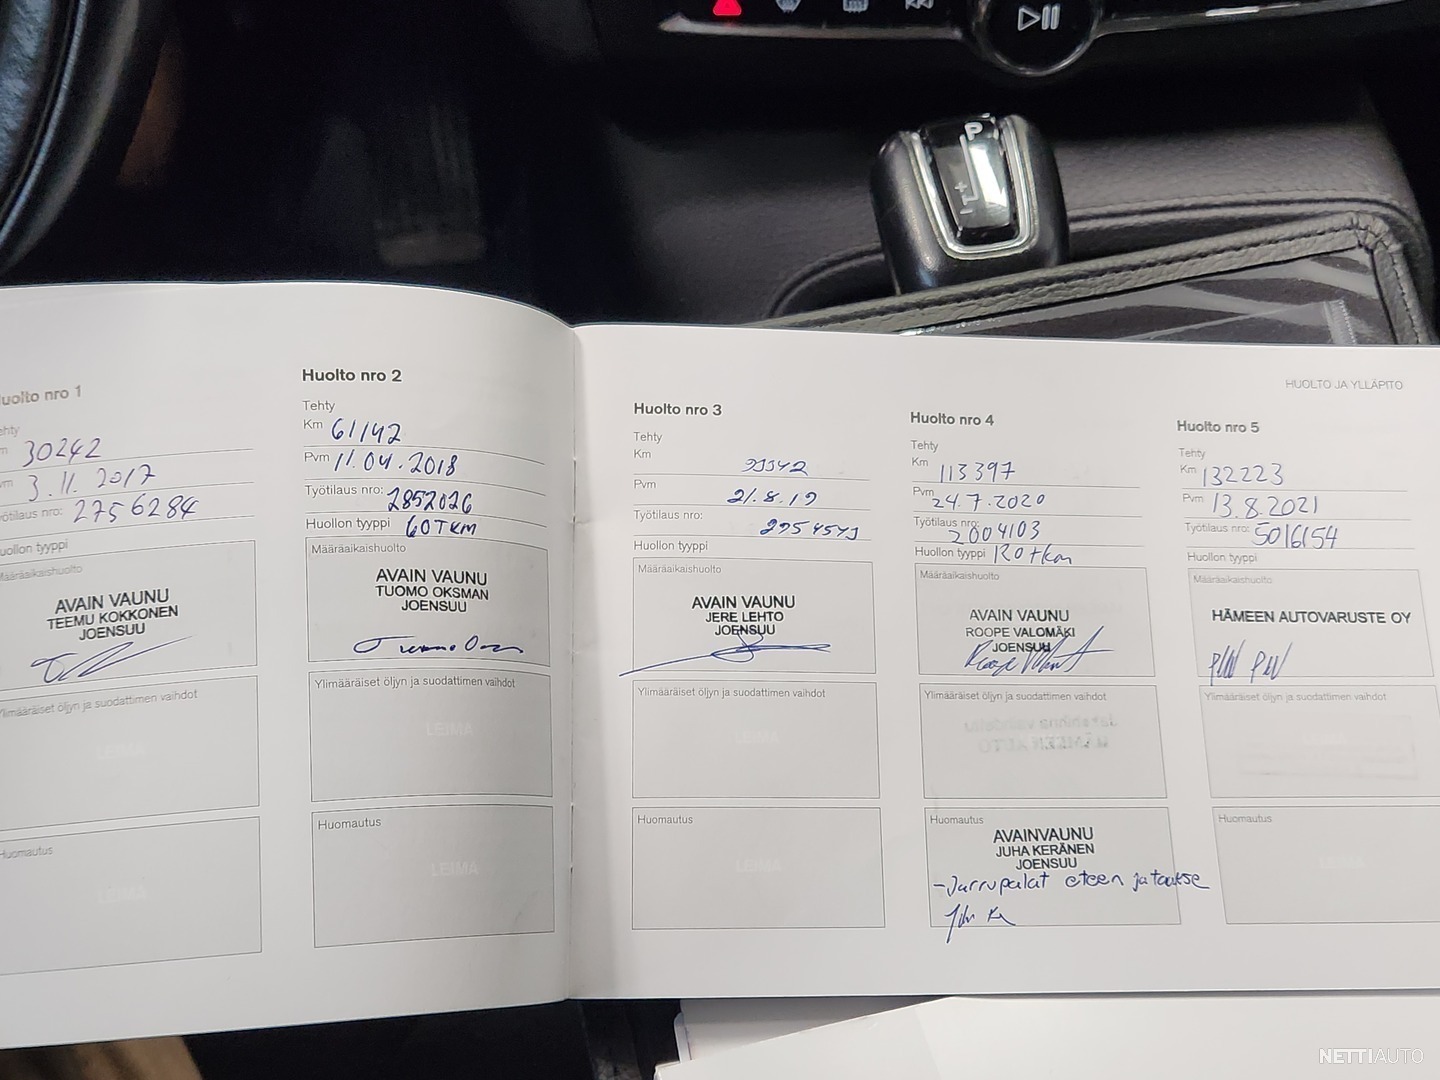 P
HUOLTO JA YLLÄPITO
uolto nro 1
ehty
m 30242
vm 3.11. 2017
yötilaus nro: 2756284
uollon tyyppi
Määräaikaishuolto
AVAIN VAUNU
TEEMU KOKKONEN
JOENSUU
Ylimääräiset öljyn ja suodattimen vaihdot
LEIMA
Huomautus
LEIMA
Huolto nro 2
Tehty
Km 61142
Pvm 11.04.2018
Työtilaus nro: 2852026
Huollon tyyppi 60TKM
Määräaikaishuolto
AVAIN VAUNU
TUOMO OKSMAN
JOENSUU
Ylimääräiset öljyn ja suodattimen vaihdot
LEIMA
Huomautus
LEIMA
Huolto nro 3
Tehty
Km
Pvm 21.8.19
Työtilaus nro:
Huollon tyyppi
Määräaikaishuolto
AVAIN VAUNU
JERE LEHTO
JOENSUU
Ylimääräiset öljyn ja suodattimen vaihdot
LEIMA
Huomautus
LEIMA
Huolto nro 4
Tehty
Km 113397
Pvm 24.7.2020
Työtilaus nro: 2004103
Huollon tyyppi
Määräaikaishuolto
AVAIN VAUNU
ROOPE VALOMÄKI
JOENSUU
Ylimääräiset öljyn ja suodattimen vaihdot
Huomautus
AVAINVAUNU
JUHA KERÄNEN
JOENSUU
-Jarrupalat eteen ja taakse
Huolto nro 5
Tehty
Km 132223
Pvm 13.8.2021
Työtilaus nro: 5016154
Huollon tyyppi
Määräaikaishuolto
HÄMEEN AUTOVARUSTE OY
Ylimääräiset öljyn ja suodattimen vaihdot
Huomautus
LEIMA
NETTIAUTO